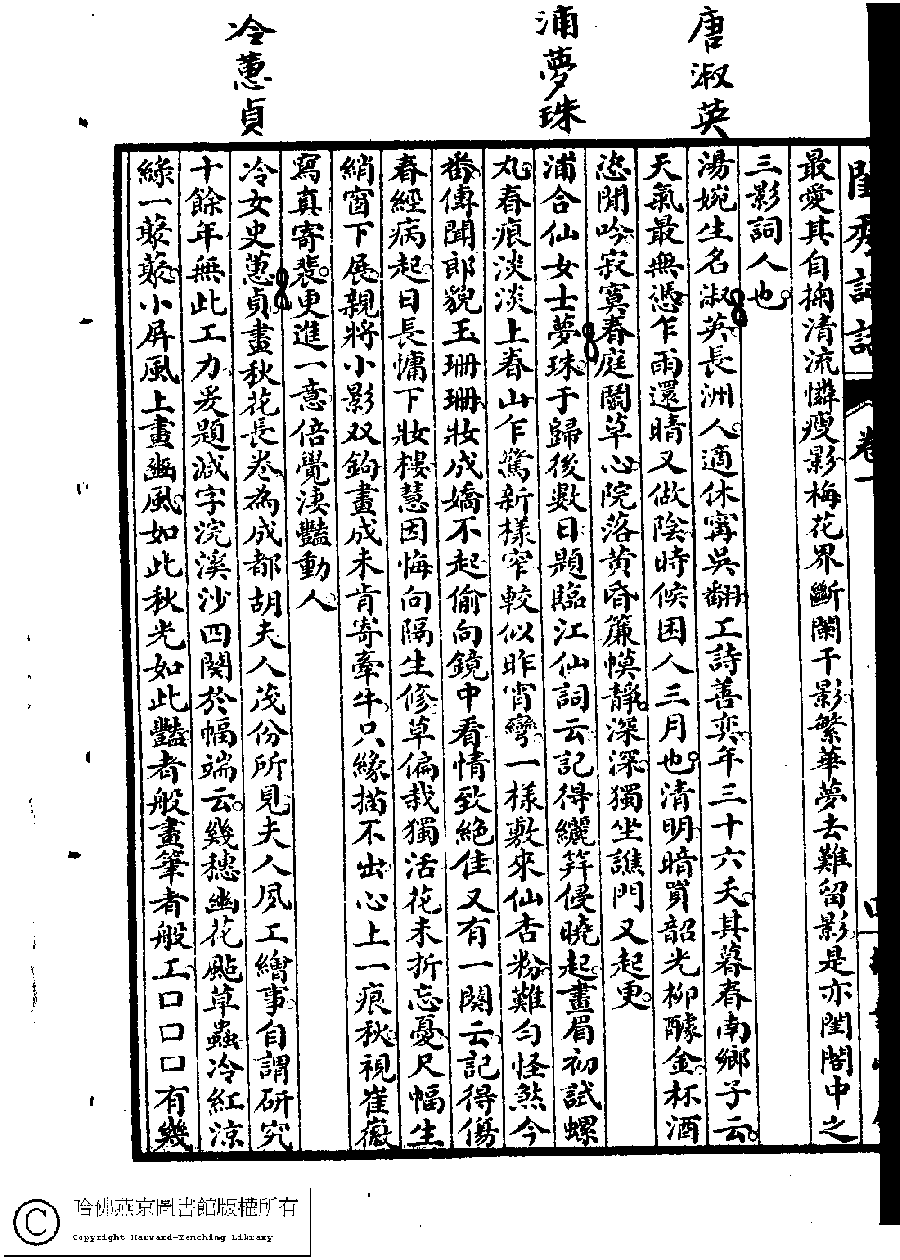 唐淑英
浦夢珠
冷蕙貞
閨秀詞話 卷一
最愛其自掬清流憐瘦影梅花界斷闌干影繁華夢去難留影是亦閨閣中之
三影詞人也
湯婉生名淑英長洲人適休甯吳翻工詩善奕年三十六夭其暮春南鄉子云
天氣最無憑乍雨還晴又做陰時候困人三月也清明暗買韶光柳釀金杯酒
恣閒吟寂寞春庭鬭草心院落黄昏簾幙靜深深獨坐譙門又起更
浦合仙女士夢珠于歸後數日題臨江仙詞云記得纚笄侵曉起畫眉初試螺
丸春痕淡淡上春山乍驚新様窄較似昨宵彎一様敷來仙杏粉難勻怪煞今
番傳聞郎貌玉珊珊妝成嬌不起偷向鏡中看情致絶佳又有一闋云記得傷
春經病起日長慵下妝樓慧因悔向隔生修草偏栽獨活花未折忘憂尺幅生
綃窗下展親將小影双鉤畫成未肯寄牽牛只緣描不出心上一痕秋視崔徽
寫真寄裴更進一意倍覺淒豔動人
冷女史蕙貞畫秋花長卷為成都胡夫人茂份所見夫人夙工繪事自謂研究
十餘年無此工力爰題減字浣溪沙四闋於幅端云幾穗幽花颭草蟲冷紅涼
綠一叢叢小屏風上畫豳風如此秋光如此豔者般畫筆者般工口口口有幾
哈佛燕京圖書館版權所有
Copyright Harvard-Yenching Library